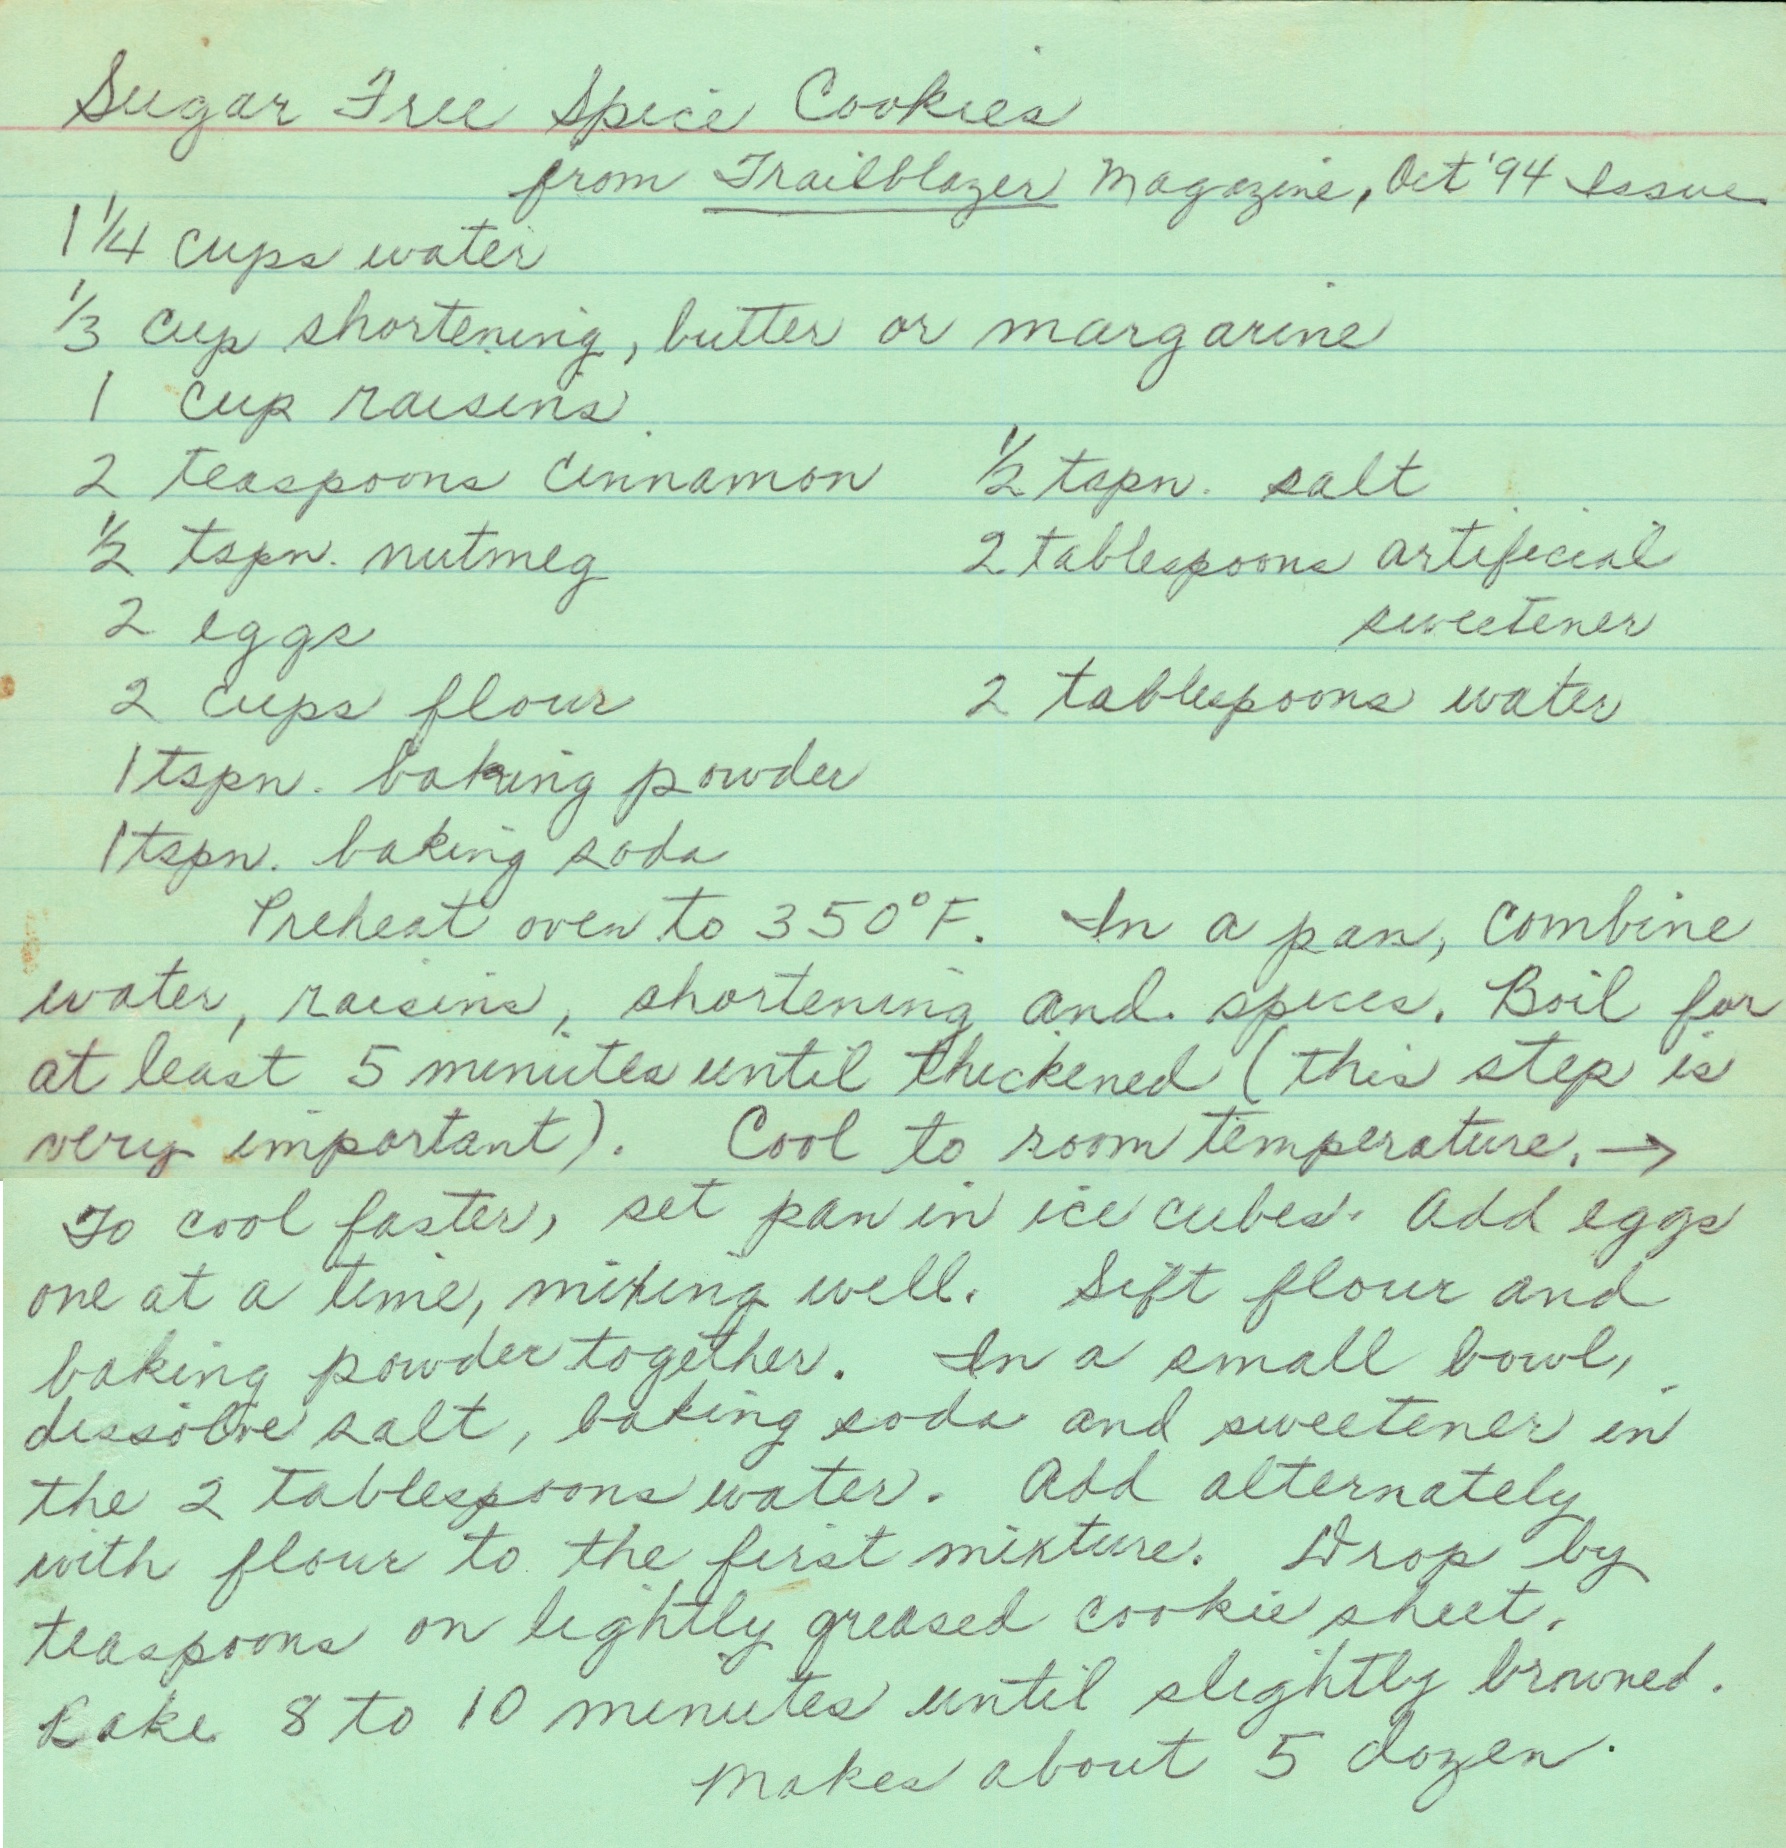 Sugar Free Spice Cookies
from Trailblazer Magazine, Oct '94 Issue
1 1/4 cups water
1/3 cup shortening, butter or margarine
1 cup raisins
2 teaspoons cinnamon
1/2 tspn. nutmeg
2 eggs
2 cups flour
1 tspn. baking powder
1 tspn. baking soda
1/2 tspn. salt
2 tablespoons artificial
sweetener
2 tablespoons water
Preheat oven to 350°F. In a pan, combine
water, raisins, shortening and spices. Boil for
at least 5 minutes until thickened (this step is
very important). Cool to room temperature. →
To cool faster, set pan in ice cubes. Add eggs
one at a time, mixing well. Sift flour and
baking powder together. In a small bowl,
dissolve salt, baking soda and sweetener in
the 2 tablespoons water. Add alternately
with flour to the first mixture. Drop by
teaspoons on lightly greased cookie sheet.
Bake 8 to 10 minutes until slightly browned.
Makes about 5 dozen.